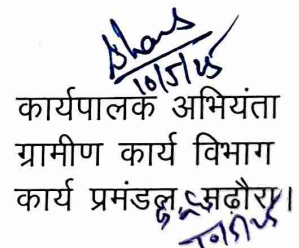 10/5/25
कार्यपालक अभियंता
ग्रामीण कार्य विभाग
कार्य प्रमंडल, मढ़ौरा।